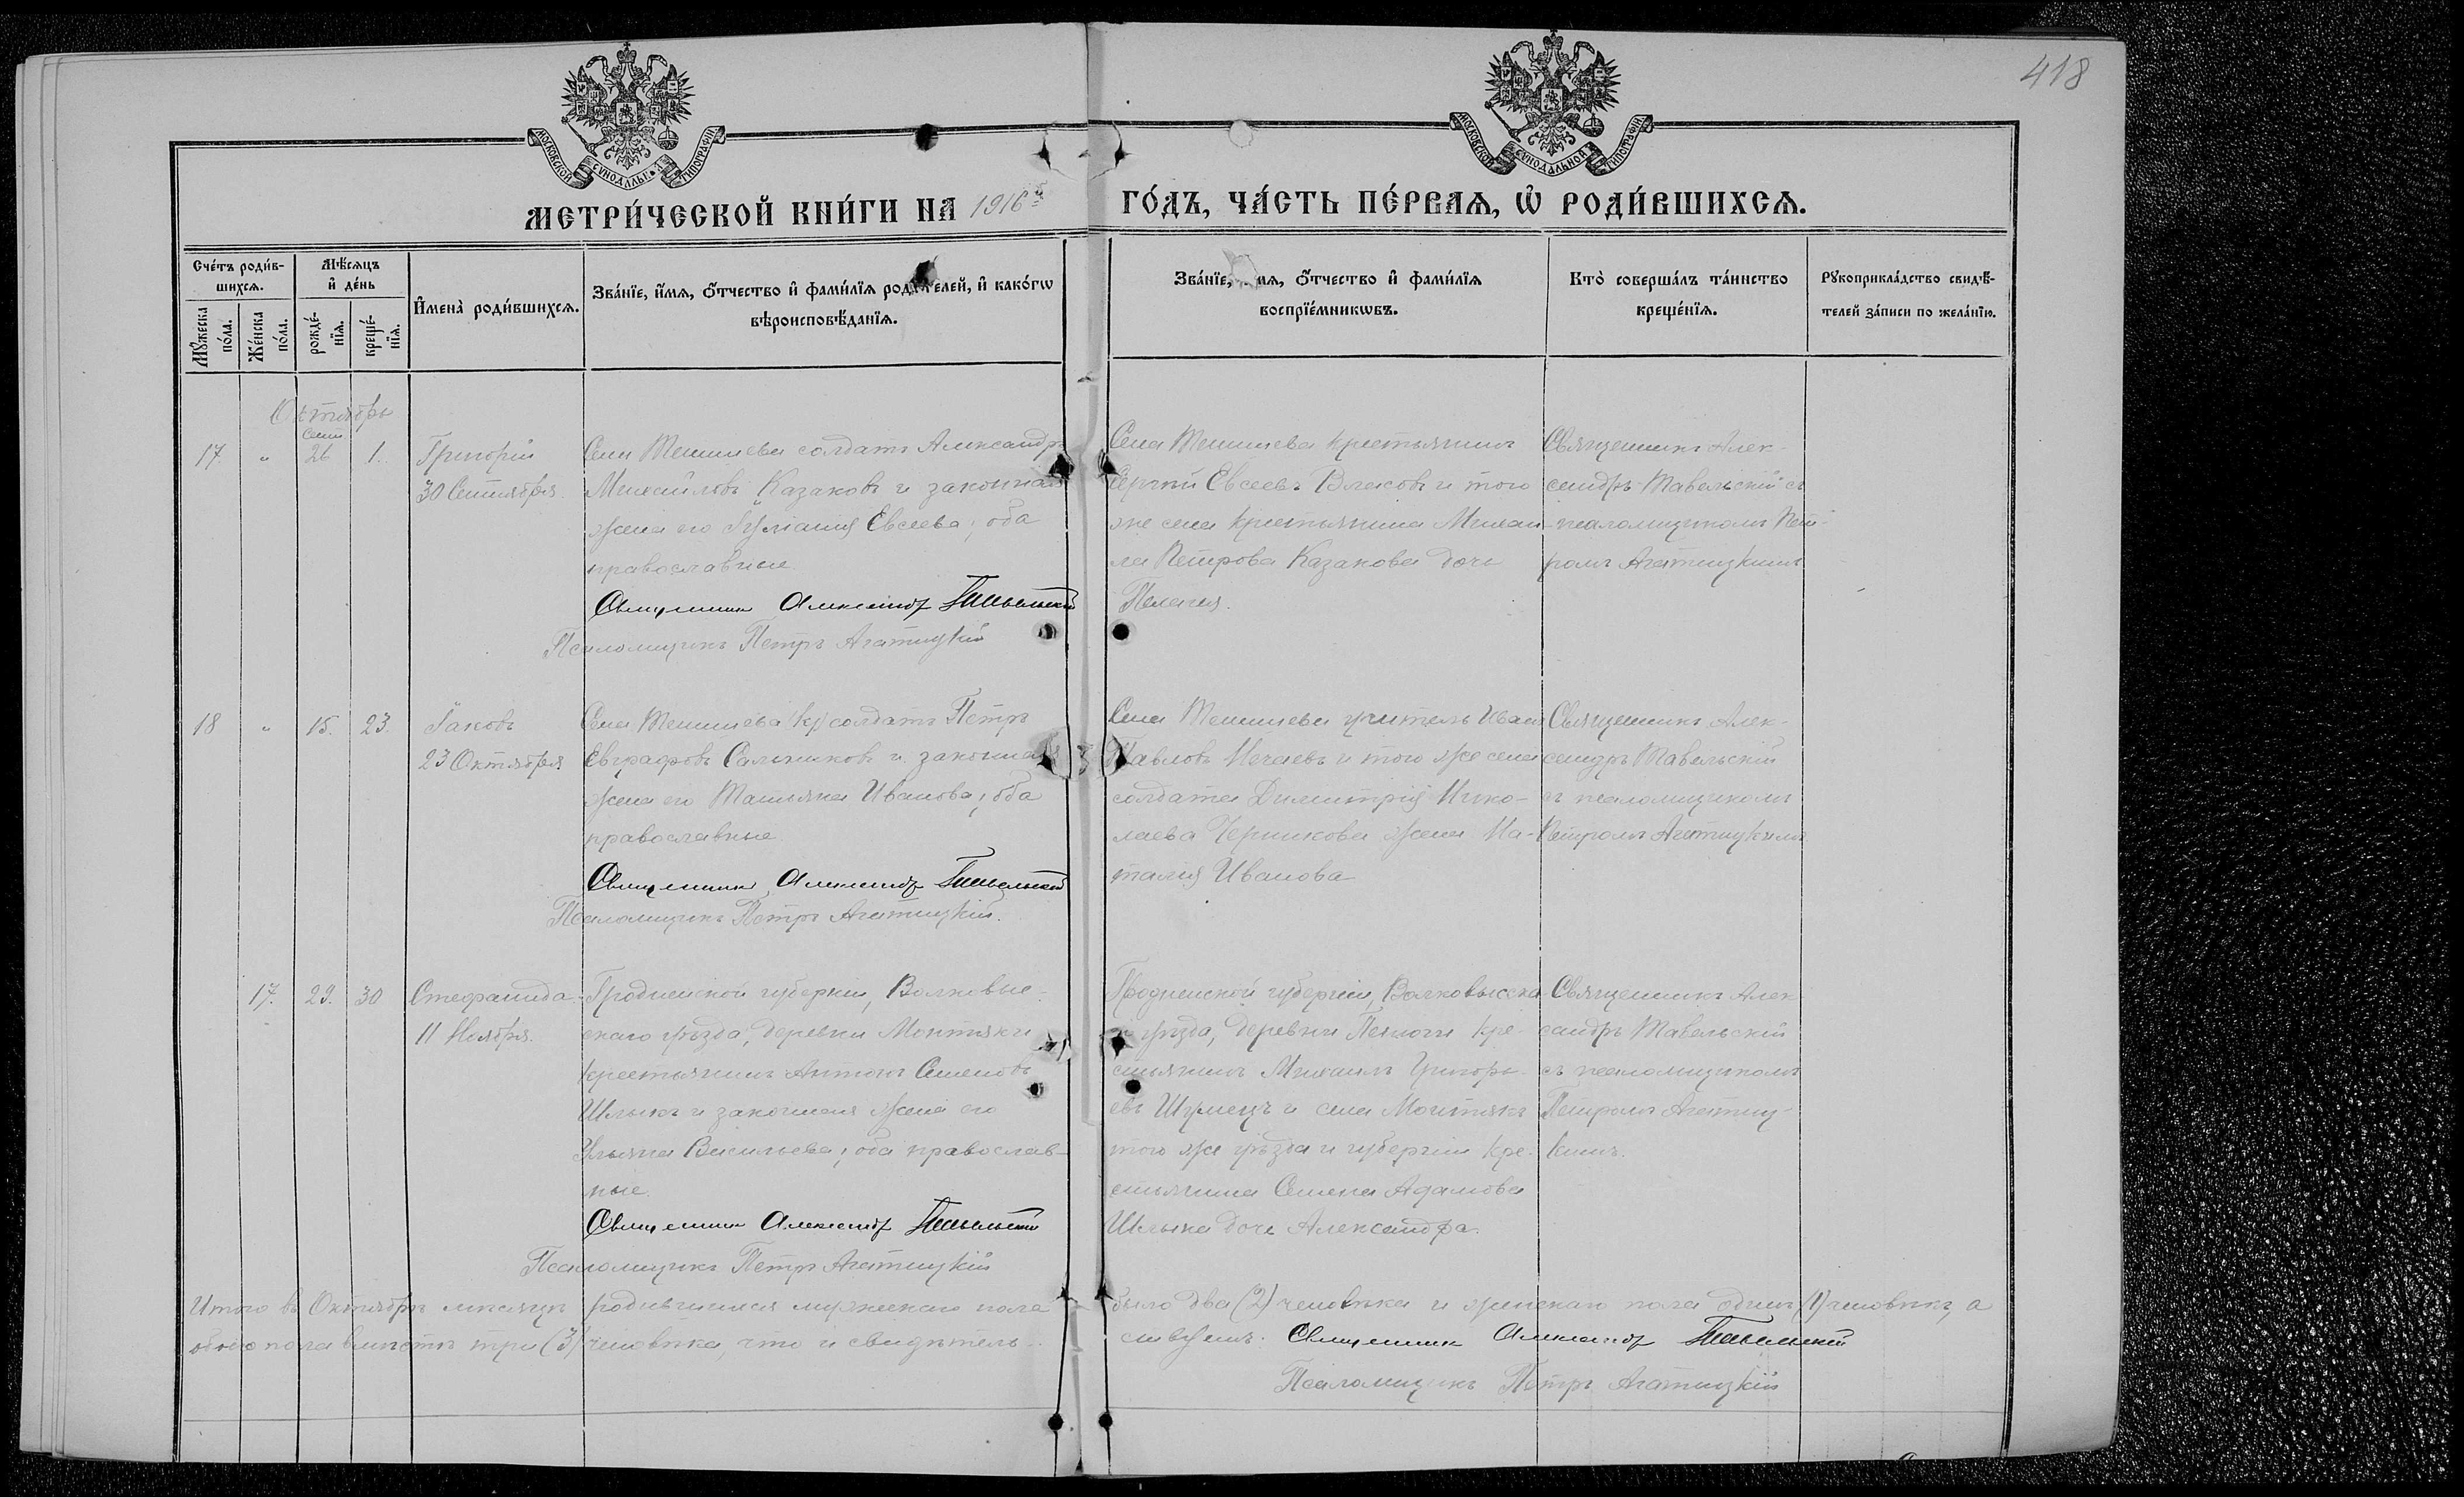 418
МОСКОВСКОЙ СѴНОДАЛЬНОЙ ТИПОГРАФІИ
МОСКОВСКОЙ СѴНОДАЛЬНОЙ ТИПОГРАФІИ
МЕТРИ́ЧЕСКОЙ КНИ́ГИ НА 1916й ГО́ДЪ, ЧА́СТЬ ПЕ́РВАЯ, Ѡ҆ РОДИ́ВШИХСѦ.
Сче́тъ роди́в-
шихсѧ.
Мꙋ́жеска по́ла.
Же́нска по́ла.
Мѣ́сѧцъ
и҆ де́нь
рожде́-нїѧ.
креще́-нїѧ.
И҆мена̀ роди́вшихсѧ.
Зва́нїе, и҆́мѧ, ѻ҆́тчество и҆ фами́лїѧ роди́телей, и҆ како́гѡ
вѣроисповѣ́данїѧ.
Зва́нїе, и҆́мѧ, ѻ҆́тчество и҆ фами́лїѧ
воспрїе́мникѡвъ.
Кто̀ соверша́лъ та́инство
креще́нїѧ.
Рꙋкоприкла́дство свидѣ́-
телей за́писи по жела́нїю.
Октябрь
17. " Сент 26 1. Григорій
30 Сентября
Села Тенишева солдатъ Александръ
Михайловъ Казаковъ и законная
жена его Іуліанія Евсеева; оба
православные.
Священникъ Александр Тавельскій
Псаломщикъ Петръ Агатицкій
Села Тенишева крестьянинъ
Сергѣй Евсеевъ Власовъ и того
же села крестьянина Михаи-
ла Петрова Казакова дочь
Пелагея.
Священникъ Алек-
сандръ Тавельскій съ
псаломщикомъ Пет-
ромъ Агатицкимъ
18 " 15. 23. Іаковъ
23 Октября
Села Тенишева кр. солдатъ Петръ
Евграфовъ Сальников и законная
жена его Татьяна Иванова; оба
православные.
Священникъ Александр Тавельскій
Псаломщикъ Петръ Агатицкій.
Села Тенишева учитель Иванъ
Павловъ Нечаевъ и того же села
солдата Димитрія Нико-
лаева Черникова жена На-
талія Иванова
Священникъ Алек-
сандръ Тавельскій
съ псаломщикомъ
Петромъ Агатицкимъ
17. 29. 30 Стефанида
11 Ноября.
Гродненской губерніи, Волковыс-
скаго уѣзда, деревни Монтяки
крестьянинъ Антонъ Семеновъ
Шлыкъ и законная жена его
Ульяна Васильева; оба православ-
ные.
Священникъ Александр Тавельскій
Псаломщикъ Петръ Агатицкій
Гродненской губерніи, Волковысска
уѣзда, деревни кре-
стьянинъ Михаилъ Григорь-
евъ и села Монтякъ
того же уѣзда и губерніи кре-
стьянина Семена Адамова
Шлыка дочь Александра.
Священникъ Алек
сандръ Тавельскій
съ псаломщикомъ
Петромъ Агатиц-
кимъ.
Итого въ Октябрѣ мѣсяцѣ родившихся мужескаго пола было два (2) человѣка и женскаго пола одинъ (1) человѣкъ, а
обоего пола вмѣстѣ три (3) человѣка, что и свидѣтель- ствуемъ. Священникъ Александр Тавельскій
Псаломщикъ Петръ Агатицкій